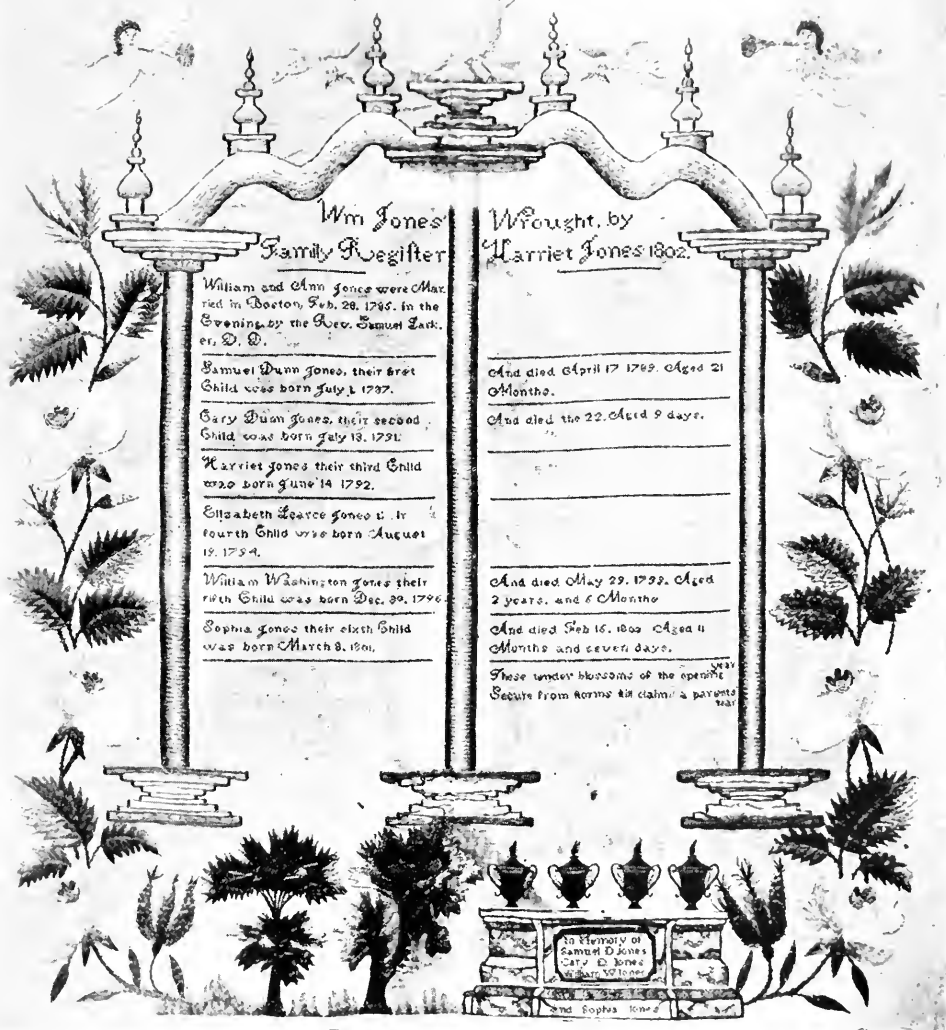 Wm Jones
Family Regiſter
William and Ann Jones were Mar
ried in Boston, Feb. 28. 1785. in the
Evening, by the Rev. Samuel
er, D. D.
Samuel Dunn Jones, their first
Child was born July 1. 1787.
Cary Dunn Jones, their second
Child was born July 13. 1791.
Harriet Jones their third Child
was born June 14 1792.
Elizabeth Jones
fourth Child was born August
19. 1794.
William Washington Jones their
fifth Child was born Dec. 1796.
Sophia Jones their sixth Child
was born March 8. 1801.
Wrought, by
Harriet Jones 1802.
And died April 17 1789. Aged 21
Months.
And died the 22. Aged 9 days.
And died May 29. 1799. Aged
2 years. and 5 Months
And died Feb 15. 1802 Aged 11
Months and seven days.
These tender blossoms of the opening year
Secure from storms still claim a parents tear
In Memory of
Samuel D Jones
Cary D. Jones
William W Jones
and Sophia Jones